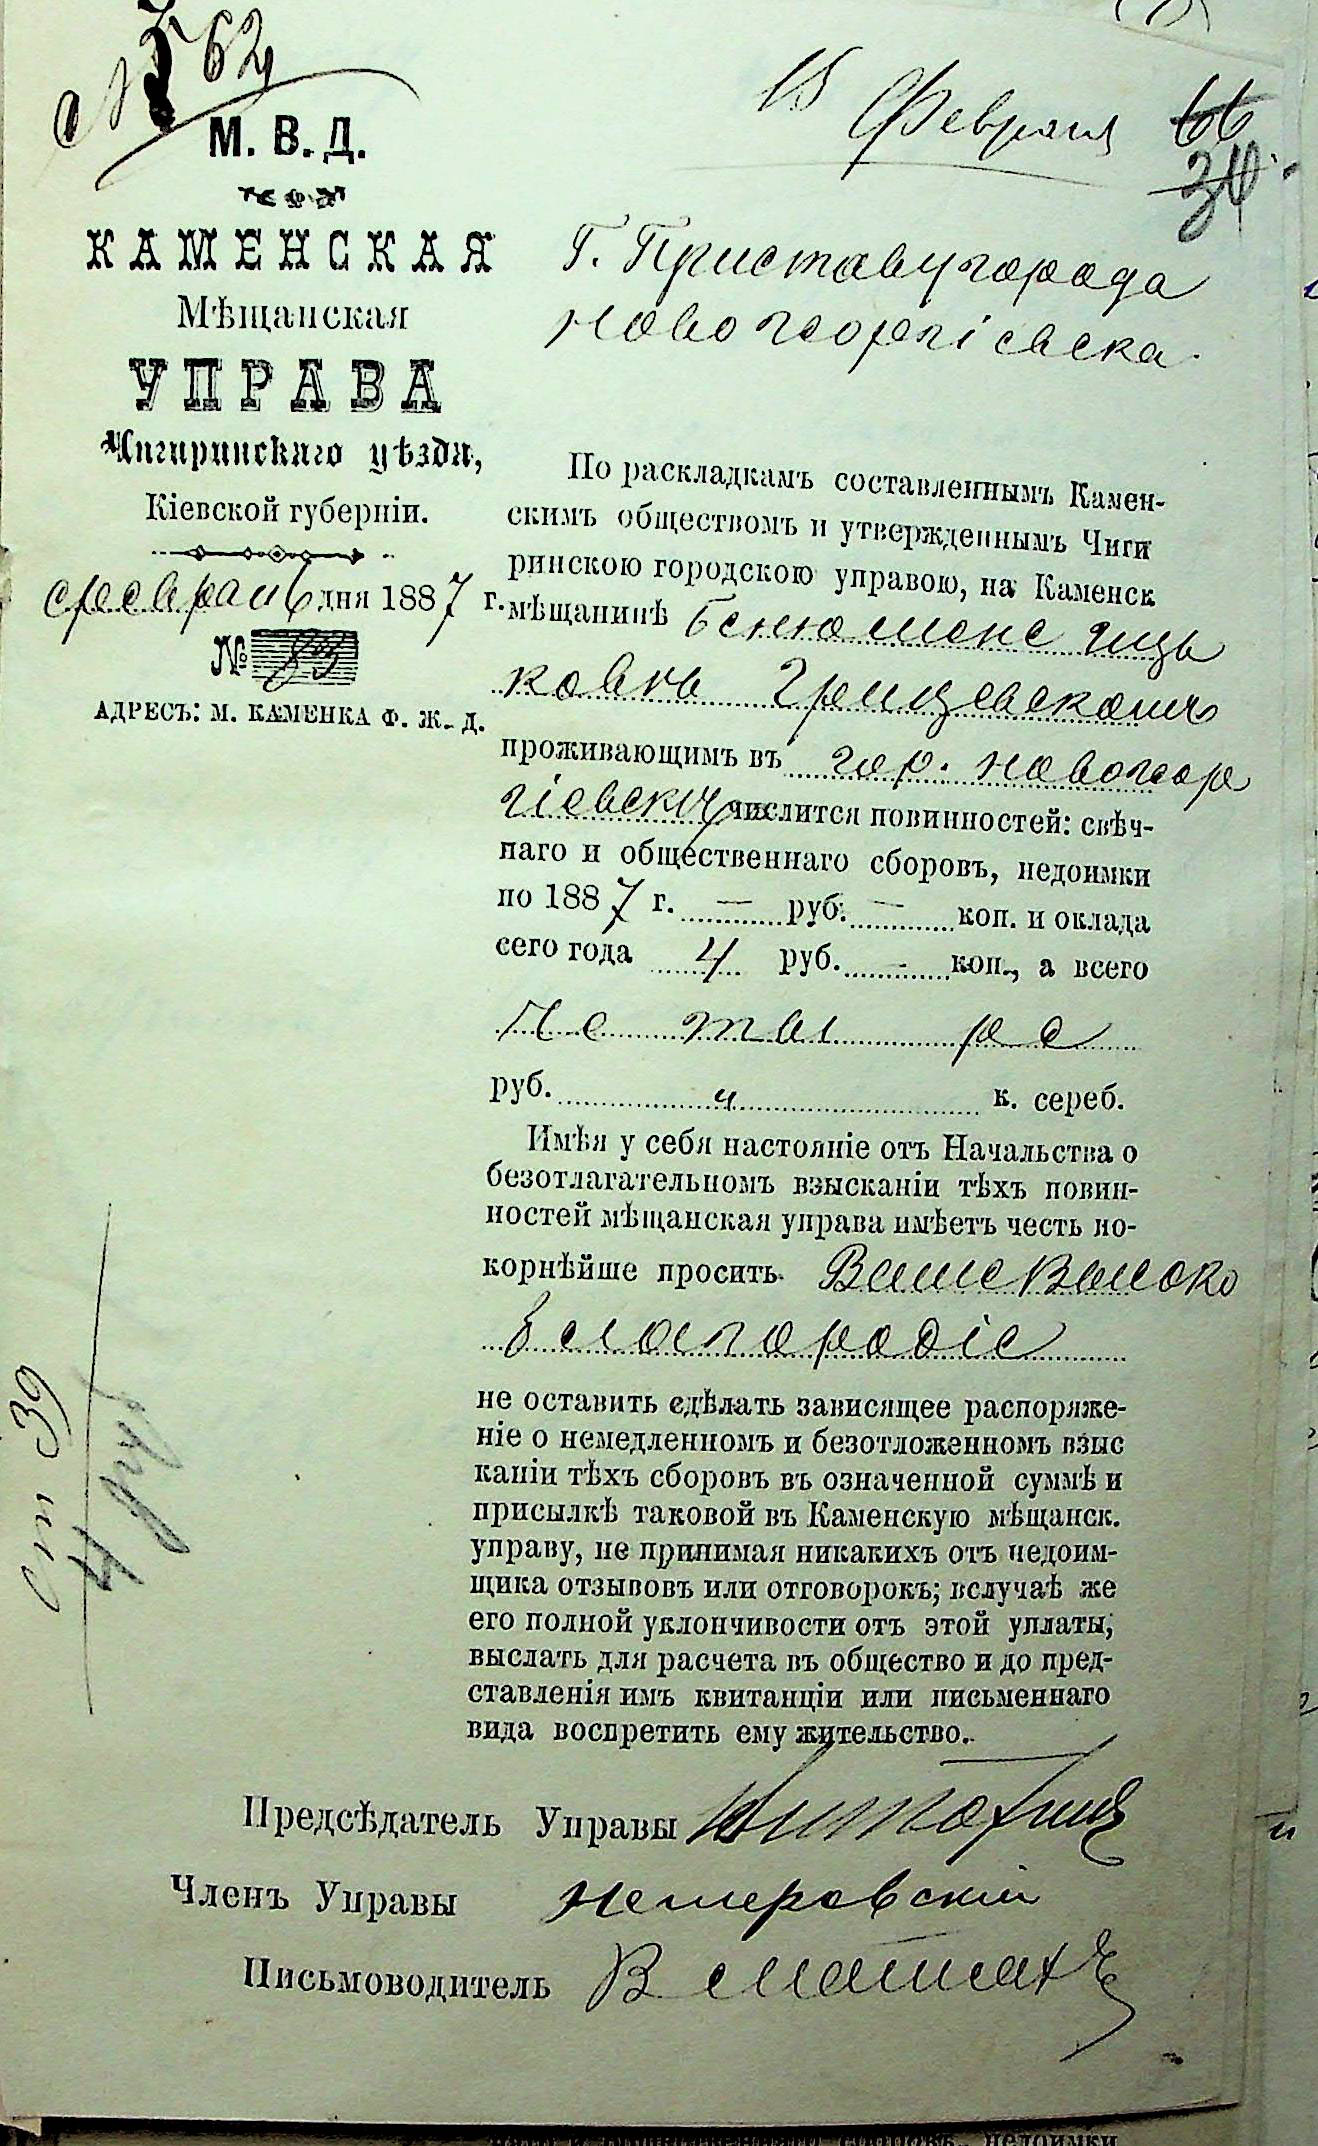 № 62
М. В. Д.
КАМЕНСКАЯ
Мѣщанская
УПРАВА
Чигиринскаго уѣзда,
Кіевской губерніи.
февраля 6 дня 1887 г.
№ 83
АДРЕСЪ: М. КАМЕНКА Ф. Ж. Д.
15 Февраля 66
34
Г. Приставу города
Новогеоргіевска.
По раскладкамъ составленнымъ Камен-
скимъ обществомъ и утвержденнымъ Чиги
ринскою городскою управою, на Каменск
мѣщанинѣ
проживающимъ въ гор. Новогеор
гіевску числится повинностей: свѣч-
наго и общественнаго сборовъ, недоимки
по 1887 г. — руб. — коп. и оклада
сего года 4 руб. - коп., а всего
четыре
руб. к. сереб.
Имѣя у себя настояніе отъ Начальства о
безотлагательномъ взысканіи тѣхъ повин-
ностей мѣщанская управа имѣетъ честь по-
корнѣйше просить Ваше Высоко
благородіе
не оставить сдѣлать зависящее распоряже-
ніе о немедленномъ и безотложенномъ взыс
каніи тѣхъ сборовъ въ означенной суммѣ и
присылкѣ таковой въ Каменскую мѣщанск.
управу, не принимая никакихъ отъ недоим-
щика отзывовъ или отговорокъ; вслучаѣ же
его полной уклончивости отъ этой уплаты,
выслать для расчета въ общество и до пред-
ставленія имъ квитанціи или письменнаго
вида воспретить ему жительство.
Предсѣдатель Управы
Членъ Управы
Письмоводитель В
ст 39
4 руб